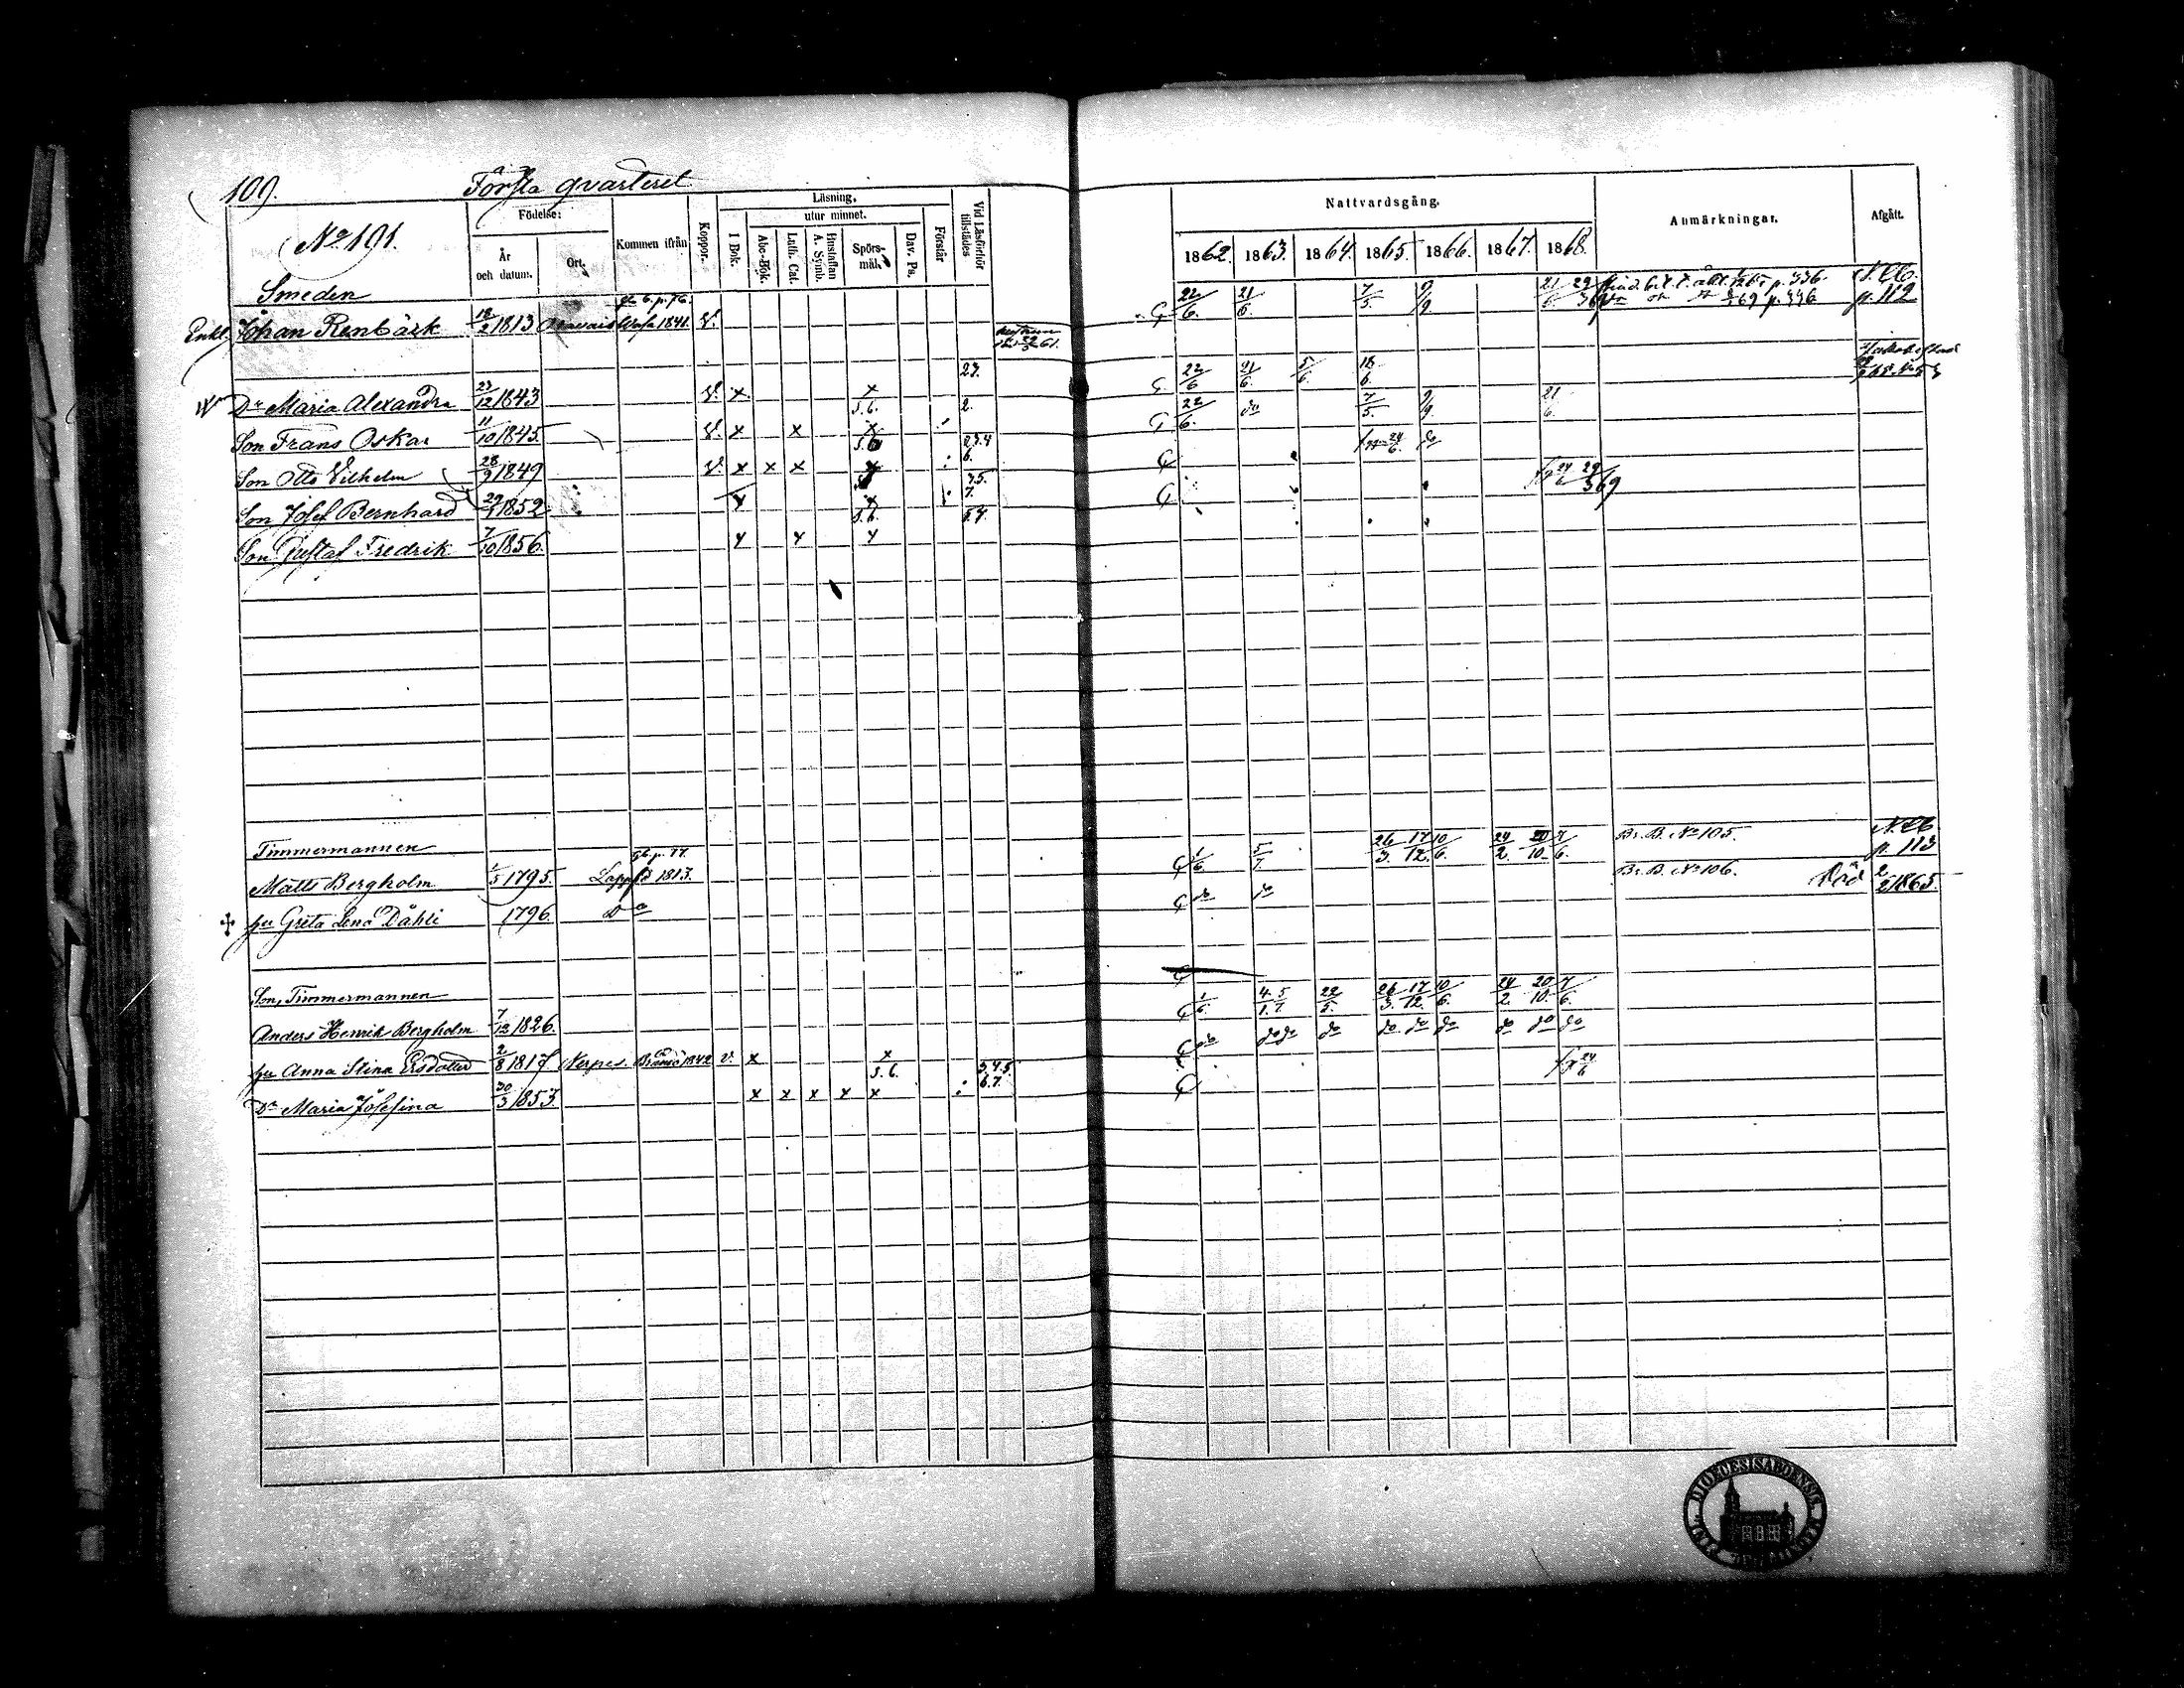 109. Första qvarteret
No 191.
Födelse:
År och datum.
Ort.
Kommen ifrån
Koppor.
Läsning.
I Bok.
utur minnet.
Abc-Bok.
Luth. Cat.
Hustaflan A. Symb.
Spörsmål.
Dav. Ps.
Förstår
Vid Läsförhör tillstädes
Nattvardsgång.
1862. 1863. 1864. 1865. 1866. 1867. 1868.
Anmärkningar.
Afgått.
Smeden
Enkl. Johan Renbäck 18/2 1813 Oravais Wasa 1841. V. 22/6. 21/6. 7/5. 9/9. p. 112
23.
Dr Maria Alexandra 23/12 1843 V. x x 22/6 21/6. 5/6. 18/6.
5.6. 2.
Son Frans Oskar 11/10 1845 V. x x x 22/6. do 7/5. 9/9. 21/6.
2.3.4
6.
Son Otto Vilhelm 28/9 1849 V. x x x do
7.
Son Josef Bernhard 1852 x x
5.6. 5.7.
Son Gustaf Fredrik 7/10 1856. x x x
Timmermannen
gb. p. 77.
Matts Bergholm 1/5 1795. Lappfd 1813. 1/6. 5/7. 26/3. 17/12. 10/6. 24/2. 20/10. 7/6. Br. B. No 105. N. CB. p. 113
hu Greta Lena Dahli 1796. Do do do Br. B. No 106. Död 2/2 1865.
Son, Timmermannen
Anders Henrik Bergholm 7/12 1826. 1/6. 4/1. 5/7. 22/5. 26/3. 17/12. 10/6. 24/2. 20/10. 7/6.
hu Anna Stina Ersdotter 2/8 1817. Nerpes. 1842 v. x x do do do do do do do do do do
5.6. 3.4.5.
6.7.
Dr Maria Josefina 30/3 1853. x x x x x 24/6
DIOECESIS ABOENSIS